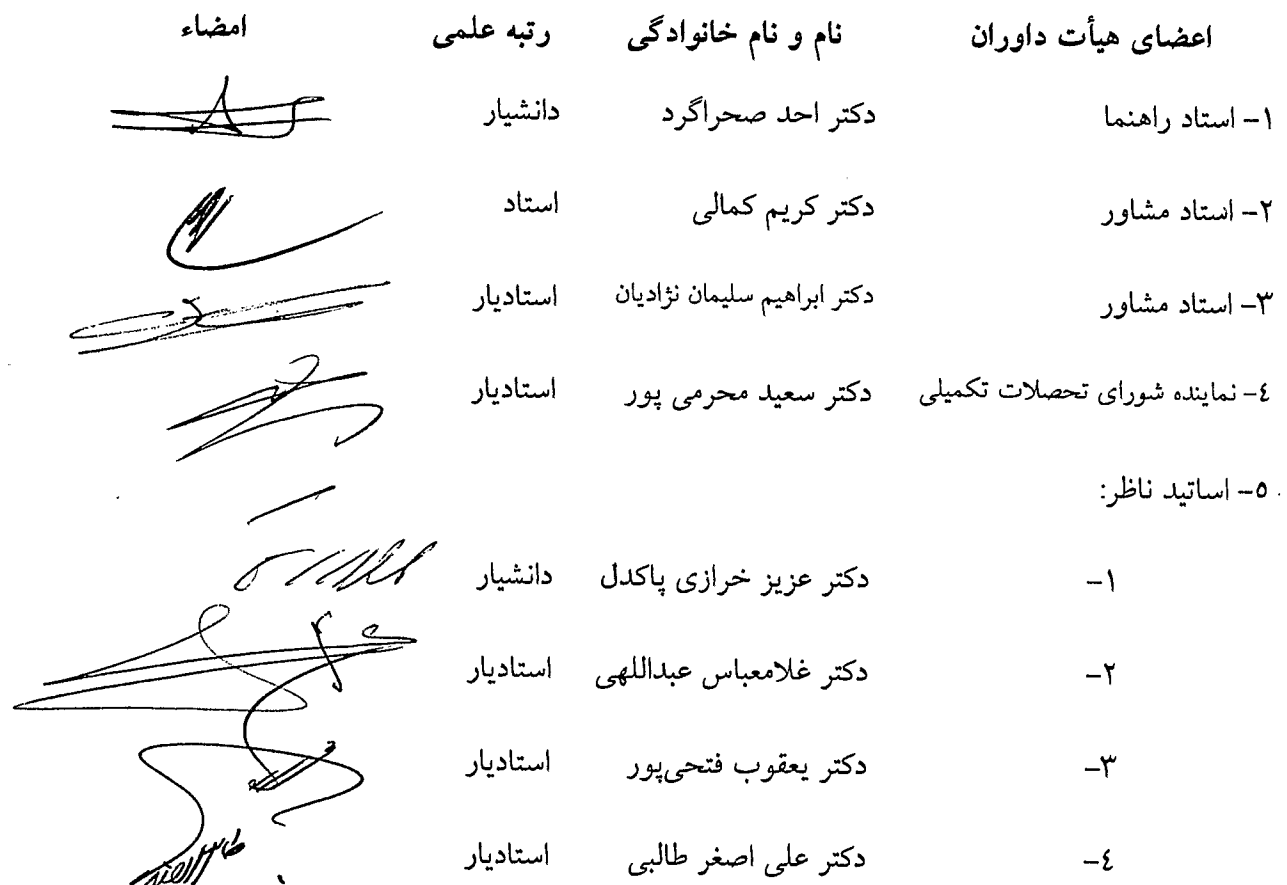 اعضای هیأت داوران نام و نام خانوادگی رتبه علمی امضاء
۱- استاد راهنما دکتر احد صحراگرد دانشیار
۲- استاد مشاور دکتر کریم کمالی استاد
۳- استاد مشاور دکتر ابراهیم سلیمان نژادیان استادیار
٤- نماینده شورای تحصلات تکمیلی دکتر سعید محرمی پور استادیار
٥- اساتید ناظر:
۱- دکتر عزیز خرازی پاکدل دانشیار
۲- دکتر غلامعباس عبداللهی استادیار
۳- دکتر یعقوب فتحی‌پور استادیار
٤- دکتر علی اصغر طالبی استادیار